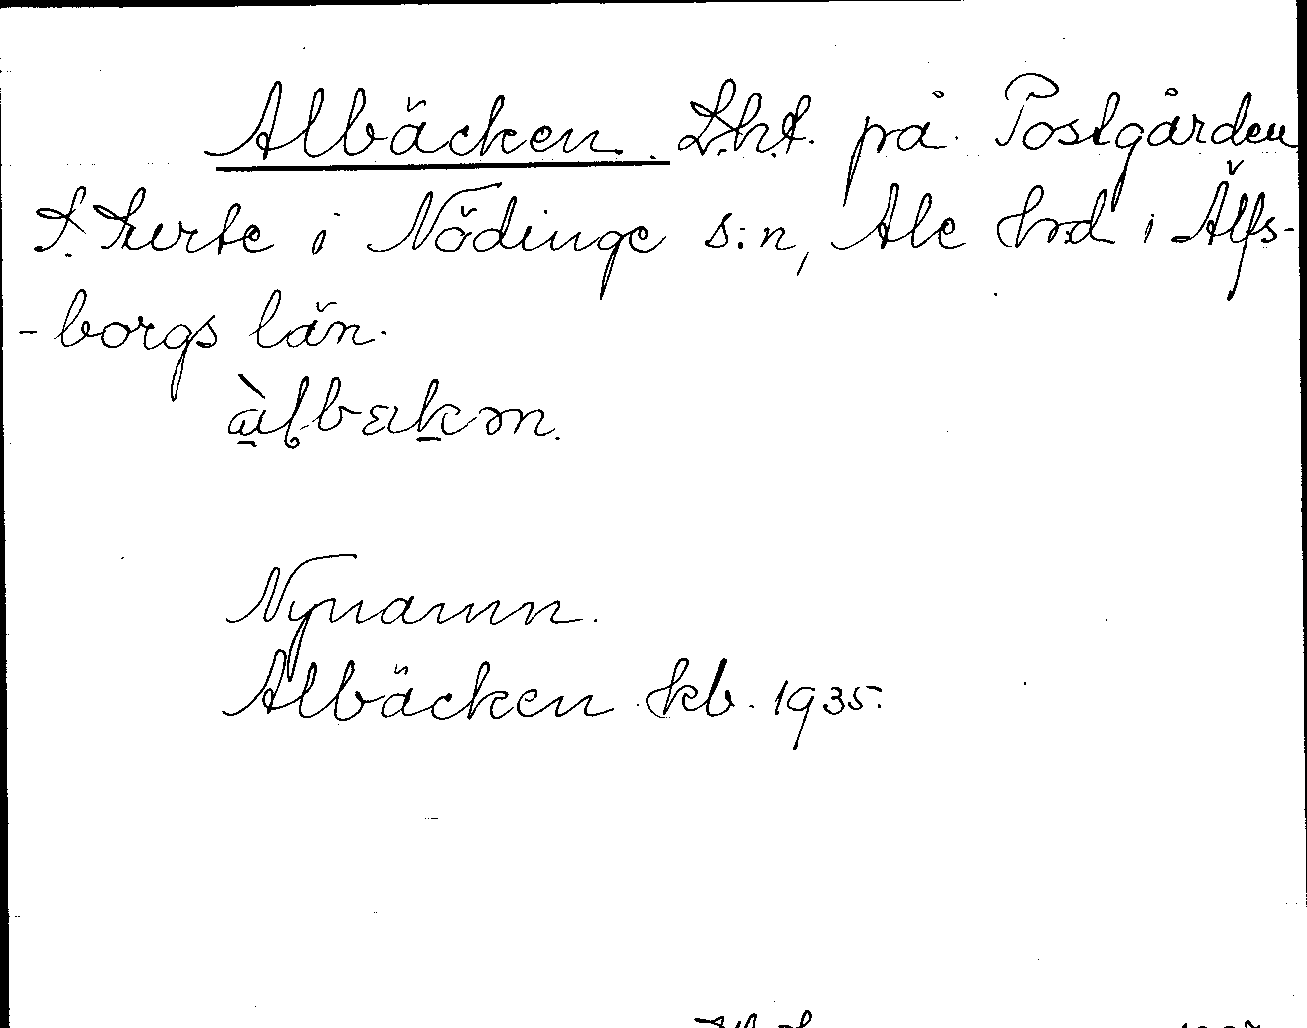 Albäcken. L.h.t. på Postgården
S. Surte i Nödinge s:n, Ale hrd i Älfs-
-borgs län.
Nynamn.
Albäcken kb. 1935.